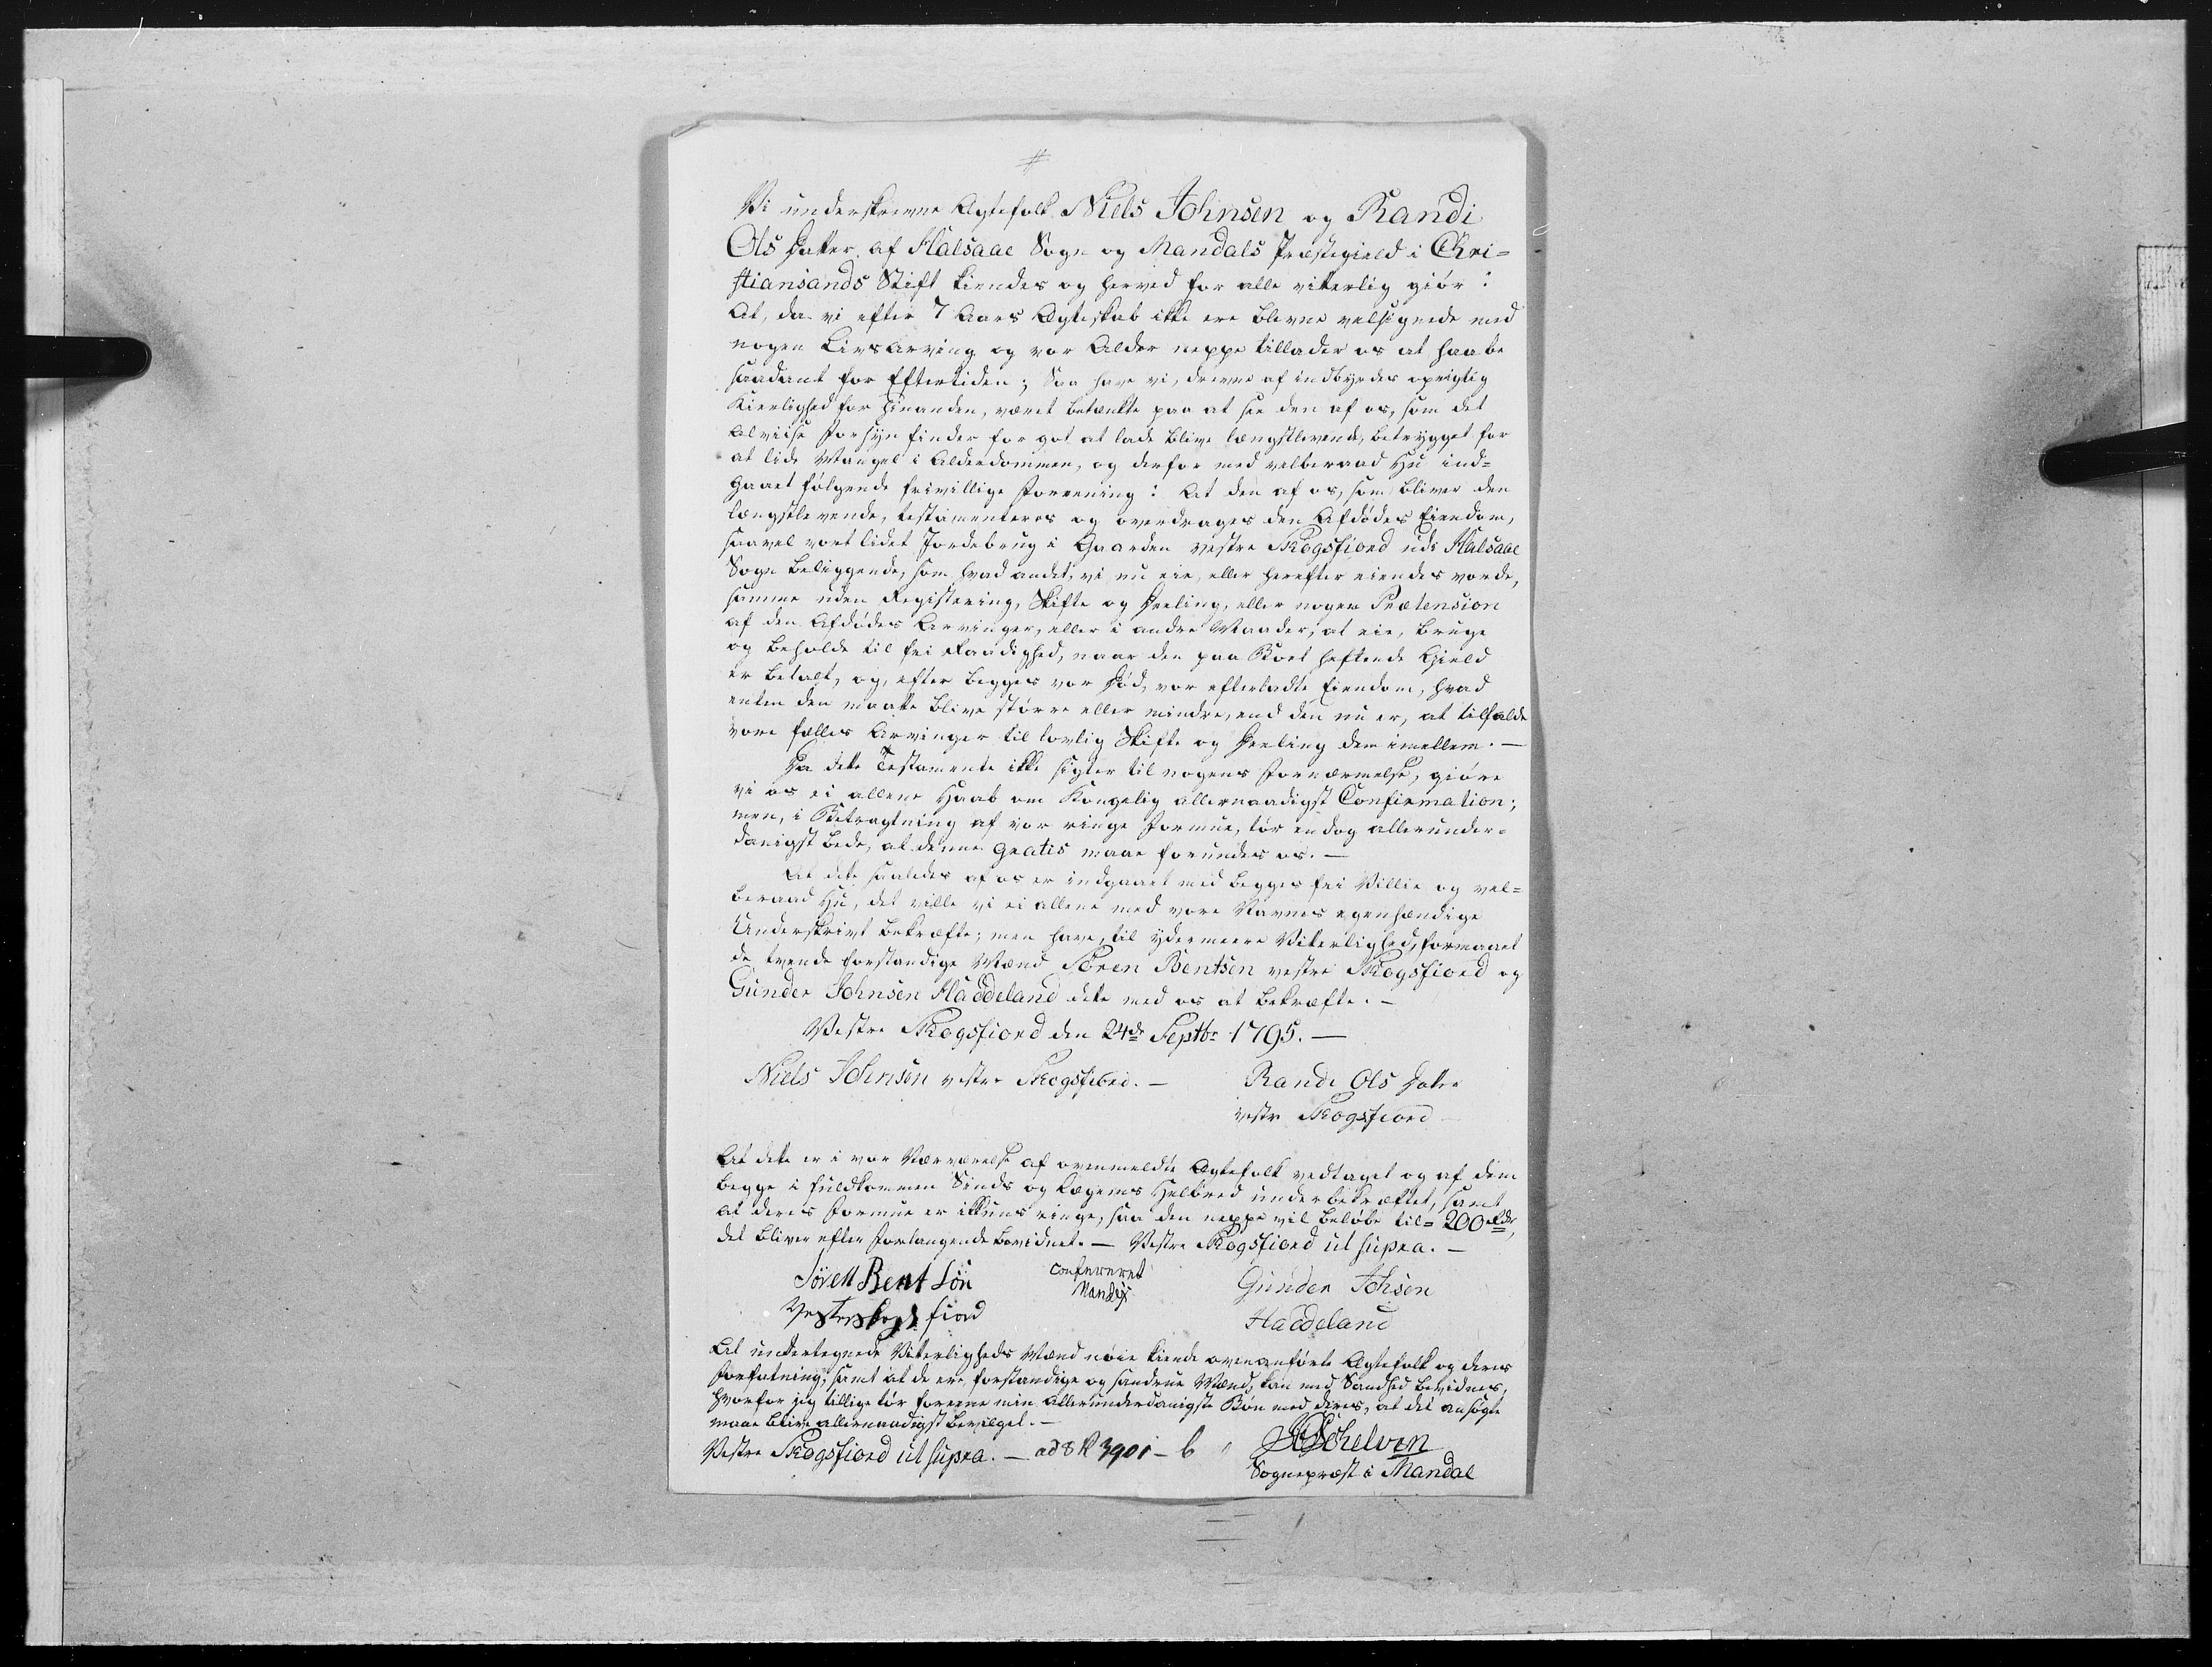 #
Vi underskrevne Ægtefolk Niels Johnsen og Randi
Ols Datter af Halsaae Sogn og Mandals Præstegield i Chri=
stiansands Stift kiendes og herved for alle vitterlig giør:
At, da vi efter 7 Aars Ægteskab ikke ere blevne velsignede med
nogen Livsarving og vor Alder neppe tillader os at haabe
saadant for Eftertiden; Saa have vi, drevne af indbyrdes oprigtig
Kierlighed for hinanden, været betænkte paa at see den af os, som det
alviise Forsyn finder for got at lade blive længstlevende, betrygget for
at lide Mangel i Alderdommen, og derfor med velberaad Hu ind=
gaaet følgende frivillige Forening: At den af os, som bliver den
længstlevende, testamenteres og overdrages den Afdødes Eiendom,
saavel vort lidet Jordebrug i Gaarden vestre Skogsfiord udi Halsaae
Sogn beliggende, som hvad andet, vi nu eie, eller herefter eiendes vorde,
samme uden Registering, Skifte og Deeling, eller nogen Prætension
af den Afdødes Arvinger, eller i andre Maader, at eie, bruge
og beholde til fri Raadighed, naar den paa Boet heftende Gield
er betalt, og, efter begges vor Død, vor efterladte Eiendom, hvad
enten den maatte blive større eller mindre, end den nu er, at tilfalde
vore fælles Arvinger til lovlig Skifte og Deeling dem imellem. —
Da dette Testamente ikke sigter til nogens Fornærmelse, giøre
vi os ei allene Haab om Kongelig allernaadigst Confirmation;
men, i Betragtning af vor ringe Formue, tør endog allerunder=
danigst bede, at denne gratis maae forundes os. —
At dette saaledes af os er indgaaet med begges frie Villie og vel=
beraad Hu, det ville vi ei allene med vore Navnes egenhændige
Underskrivt bekræfte; men have, til ydermeere Vitterlighed, formaaet
de tvende forstandige Mænd Søren Bentsen vestre Skogsfiord og
Gunder Johnsen Haddeland dette med os at bekræfte. —
Vestre Skogsfiord den 24de Septbr 1795. —
Niels Johnsen vestre Skogsfiord. — Randi Ols Datter
vestre Skogsfiord
At dette er i vor Nærværelse af ovenmeldte Ægtefolk vedtaget og af dem
begge i fuldkommen Sinds og Legems Helbred underbekræftet, samt
at deres Formue er ikkuns ringe, saa den neppe vil beløbe til 200 Rdr,
det bliver efter Forlangende bevidnet. — Vestre Skogsfiord ut supra. —
Søren Bent Søn confereret Gunder Johsen
Vestreskogsfiord Mandix Haddeland
At undertegnede Vitterligheds Mænd nøie kiende ovenanførte Ægtefolk og deres
Forfatning, samt at de ere forstandige og sandrue Mænd, kan med Sandhed bevidnes,
hvorfor jeg tillige tør foreene min allerunderdanigste Bøn med deres, at det ansøgte
maae blive allernaadigst bevilget. —
Vestre Skogsfiord ut supra. — ad 3901 - b Schelven
Sognepræst i Mandal